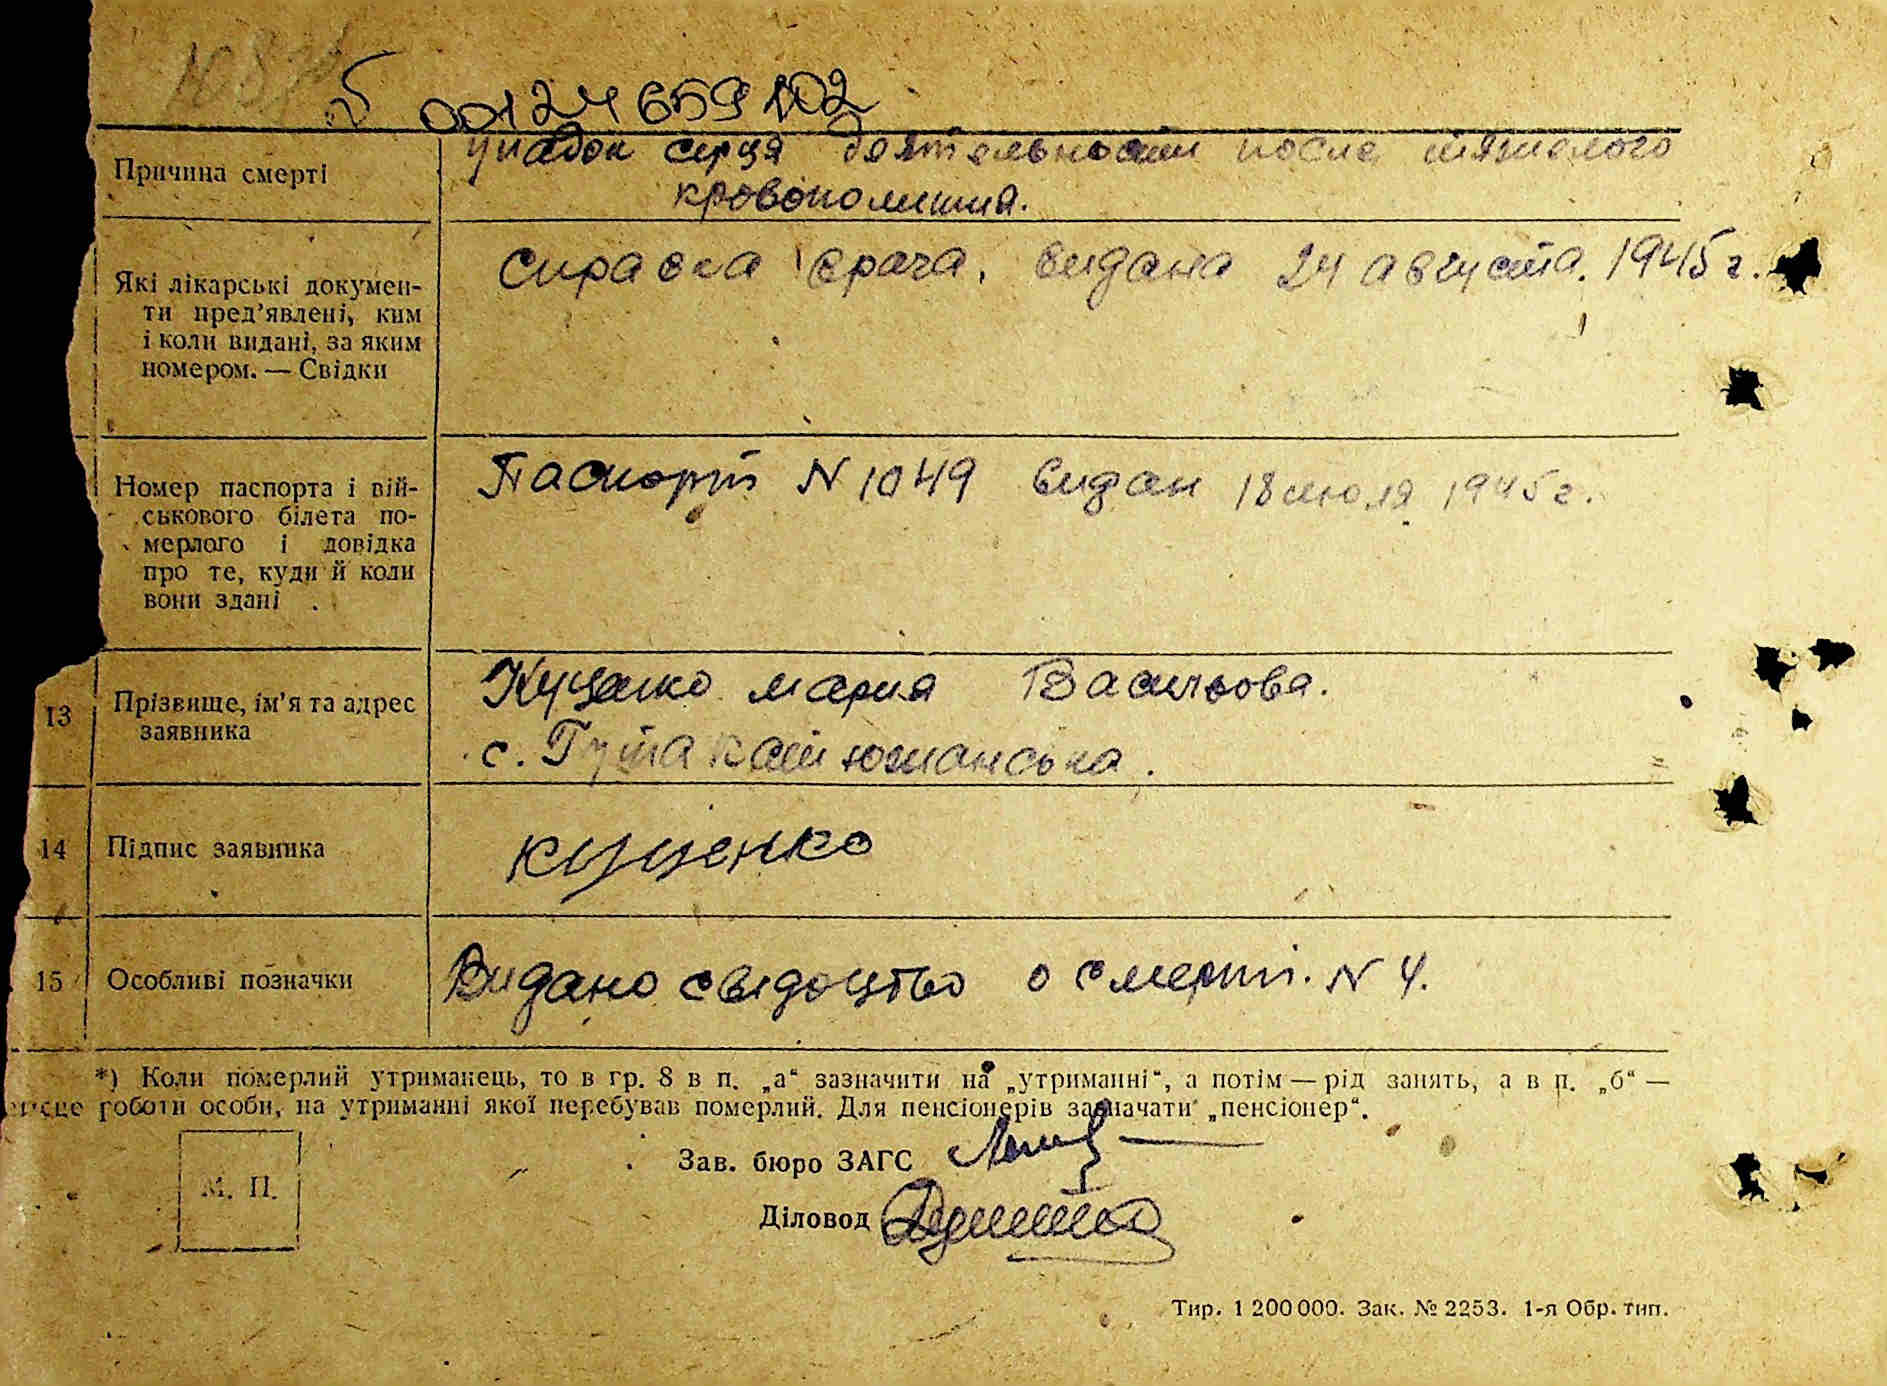 00124659102
Причина смерті
упадок серця деятельности после тяжелого
кровополития.
Які лікарські докумен-
ти пред'явлені, ким
і коли видані, за яким
номером. — Свідки
справка врача, видана 24 августа. 1945 г.
Номер паспорта і вій-
ськового білета по-
мерлого і довідка
про те, куди й коли
вони здані .
Паспорт N 1049 видан 18 июля 1945 г.
13
Прізвище, ім'я та адрес
заявника
Куценко мария Васильова.
с. Гута Катюжанська.
14
Підпис заявника
куценко
15
Особливі позначки
Видано свидоцтво о смерти. N 4.
*) Коли померлий утриманець, то в гр. 8 в п. „а“ зазначити на „утриманні“, а потім — рід занять, а в п. „б“ —
місце роботи особи, на утриманні якої перебував померлий. Для пенсіонерів зазначати „пенсіонер“.
М. П.
Зав. бюро ЗАГС
Діловод
Тир. 1 200 000. Зак. № 2253. 1-я Обр. тип.